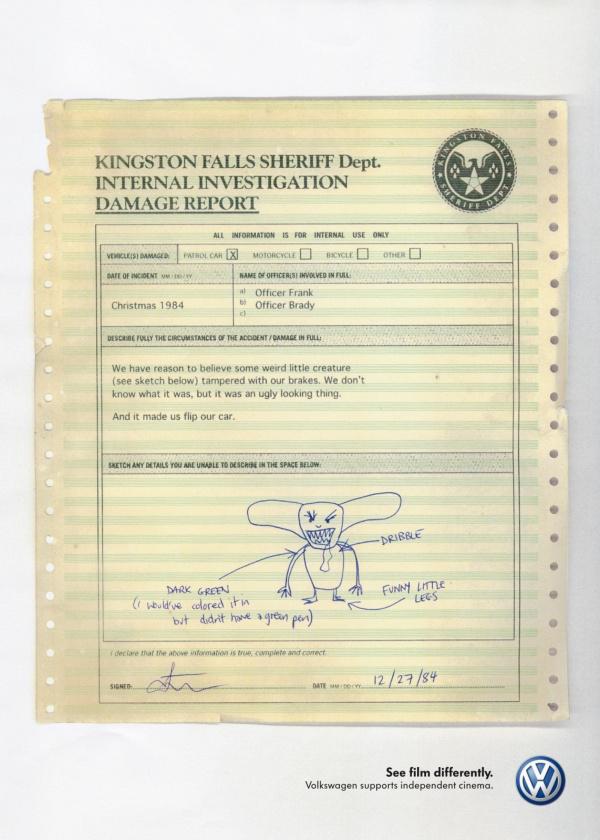 KINGSTON FALLS SHERIFF Dept.
INTERNAL INVESTIGATION
DAMAGE REPORT
KINGSTON FALLS
SHERIFF DEPT
ALL INFORMATION IS FOR INTERNAL USE ONLY
VEHICLE(S) DAMAGED: PATROL CAR X MOTORCYCLE BICYCLE OTHER
DATE OF INCIDENT MM / DD / YY NAME OF OFFICER(S) INVOLVED IN FULL:
a) Officer Frank
Christmas 1984 b) Officer Brady
c)
DESCRIBE FULLY THE CIRCUMSTANCES OF THE ACCIDENT / DAMAGE IN FULL:
We have reason to believe some weird little creature
(see sketch below) tampered with our brakes. We don't
know what it was, but it was an ugly looking thing.
And it made us flip our car.
SKETCH ANY DETAILS YOU ARE UNABLE TO DESCRIBE IN THE SPACE BELOW:
DRIBBLE
DARK GREEN
(I would've colored it in
but didn't have a green pen)
FUNNY LITTLE
LEGS
I declare that the above information is true, complete and correct.
SIGNED: DATE MM / DD / YY 12/27/84
See film differently.
Volkswagen supports independent cinema.